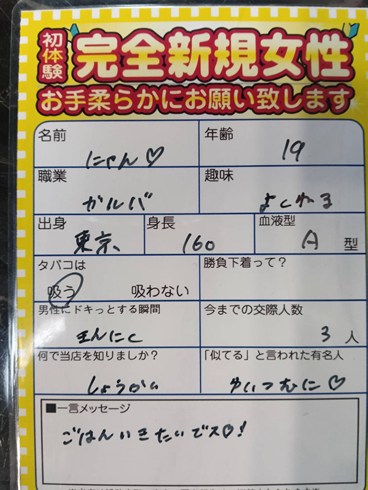 初体験
完全新規女性
お手柔らかにお願い致します
名前
にゃん♡
年齢
19
職業
ガルバ
趣味
出身
東京
身長
160
血液型
A 型
タバコは
吸う 吸わない
勝負下着って？
男性にドキっとする瞬間
今までの交際人数
3 人
何で当店を知りましたか？
しょうかい
「似てる」と言われた有名人
ゆいつむに♡
■一言メッセージ
ごはんいきたいでス♡!